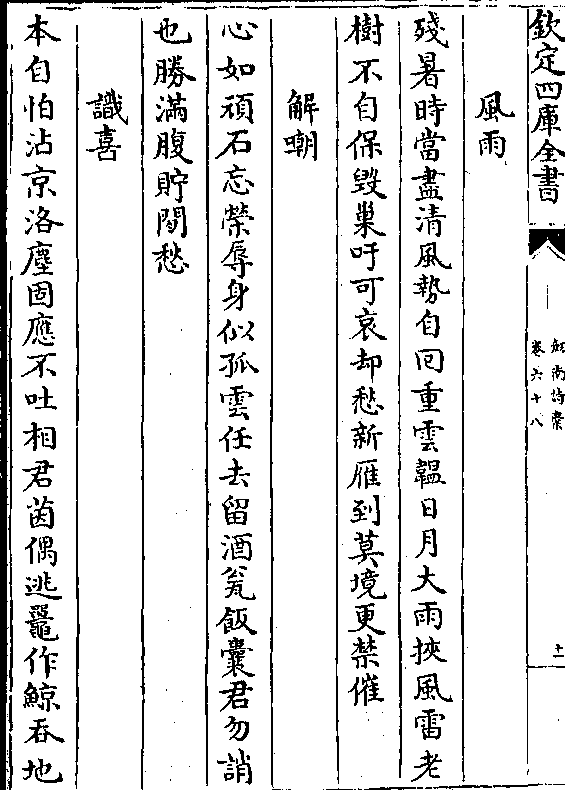 欽定四庫全書
劍南詩稾
卷六十八
十一
風雨
殘暑時當盡清風勢自回重雲韞日月大雨挾風雷老
樹不自保毀巢吁可哀却愁新雁到莫境更禁催
解嘲
心如頑石忘榮辱身似孤雲任去留酒瓮飯囊君勿誚
也勝滿腹貯閒愁
識喜
本自怕沾京洛塵固應不吐相君茵偶逃鼉作鯨吞地